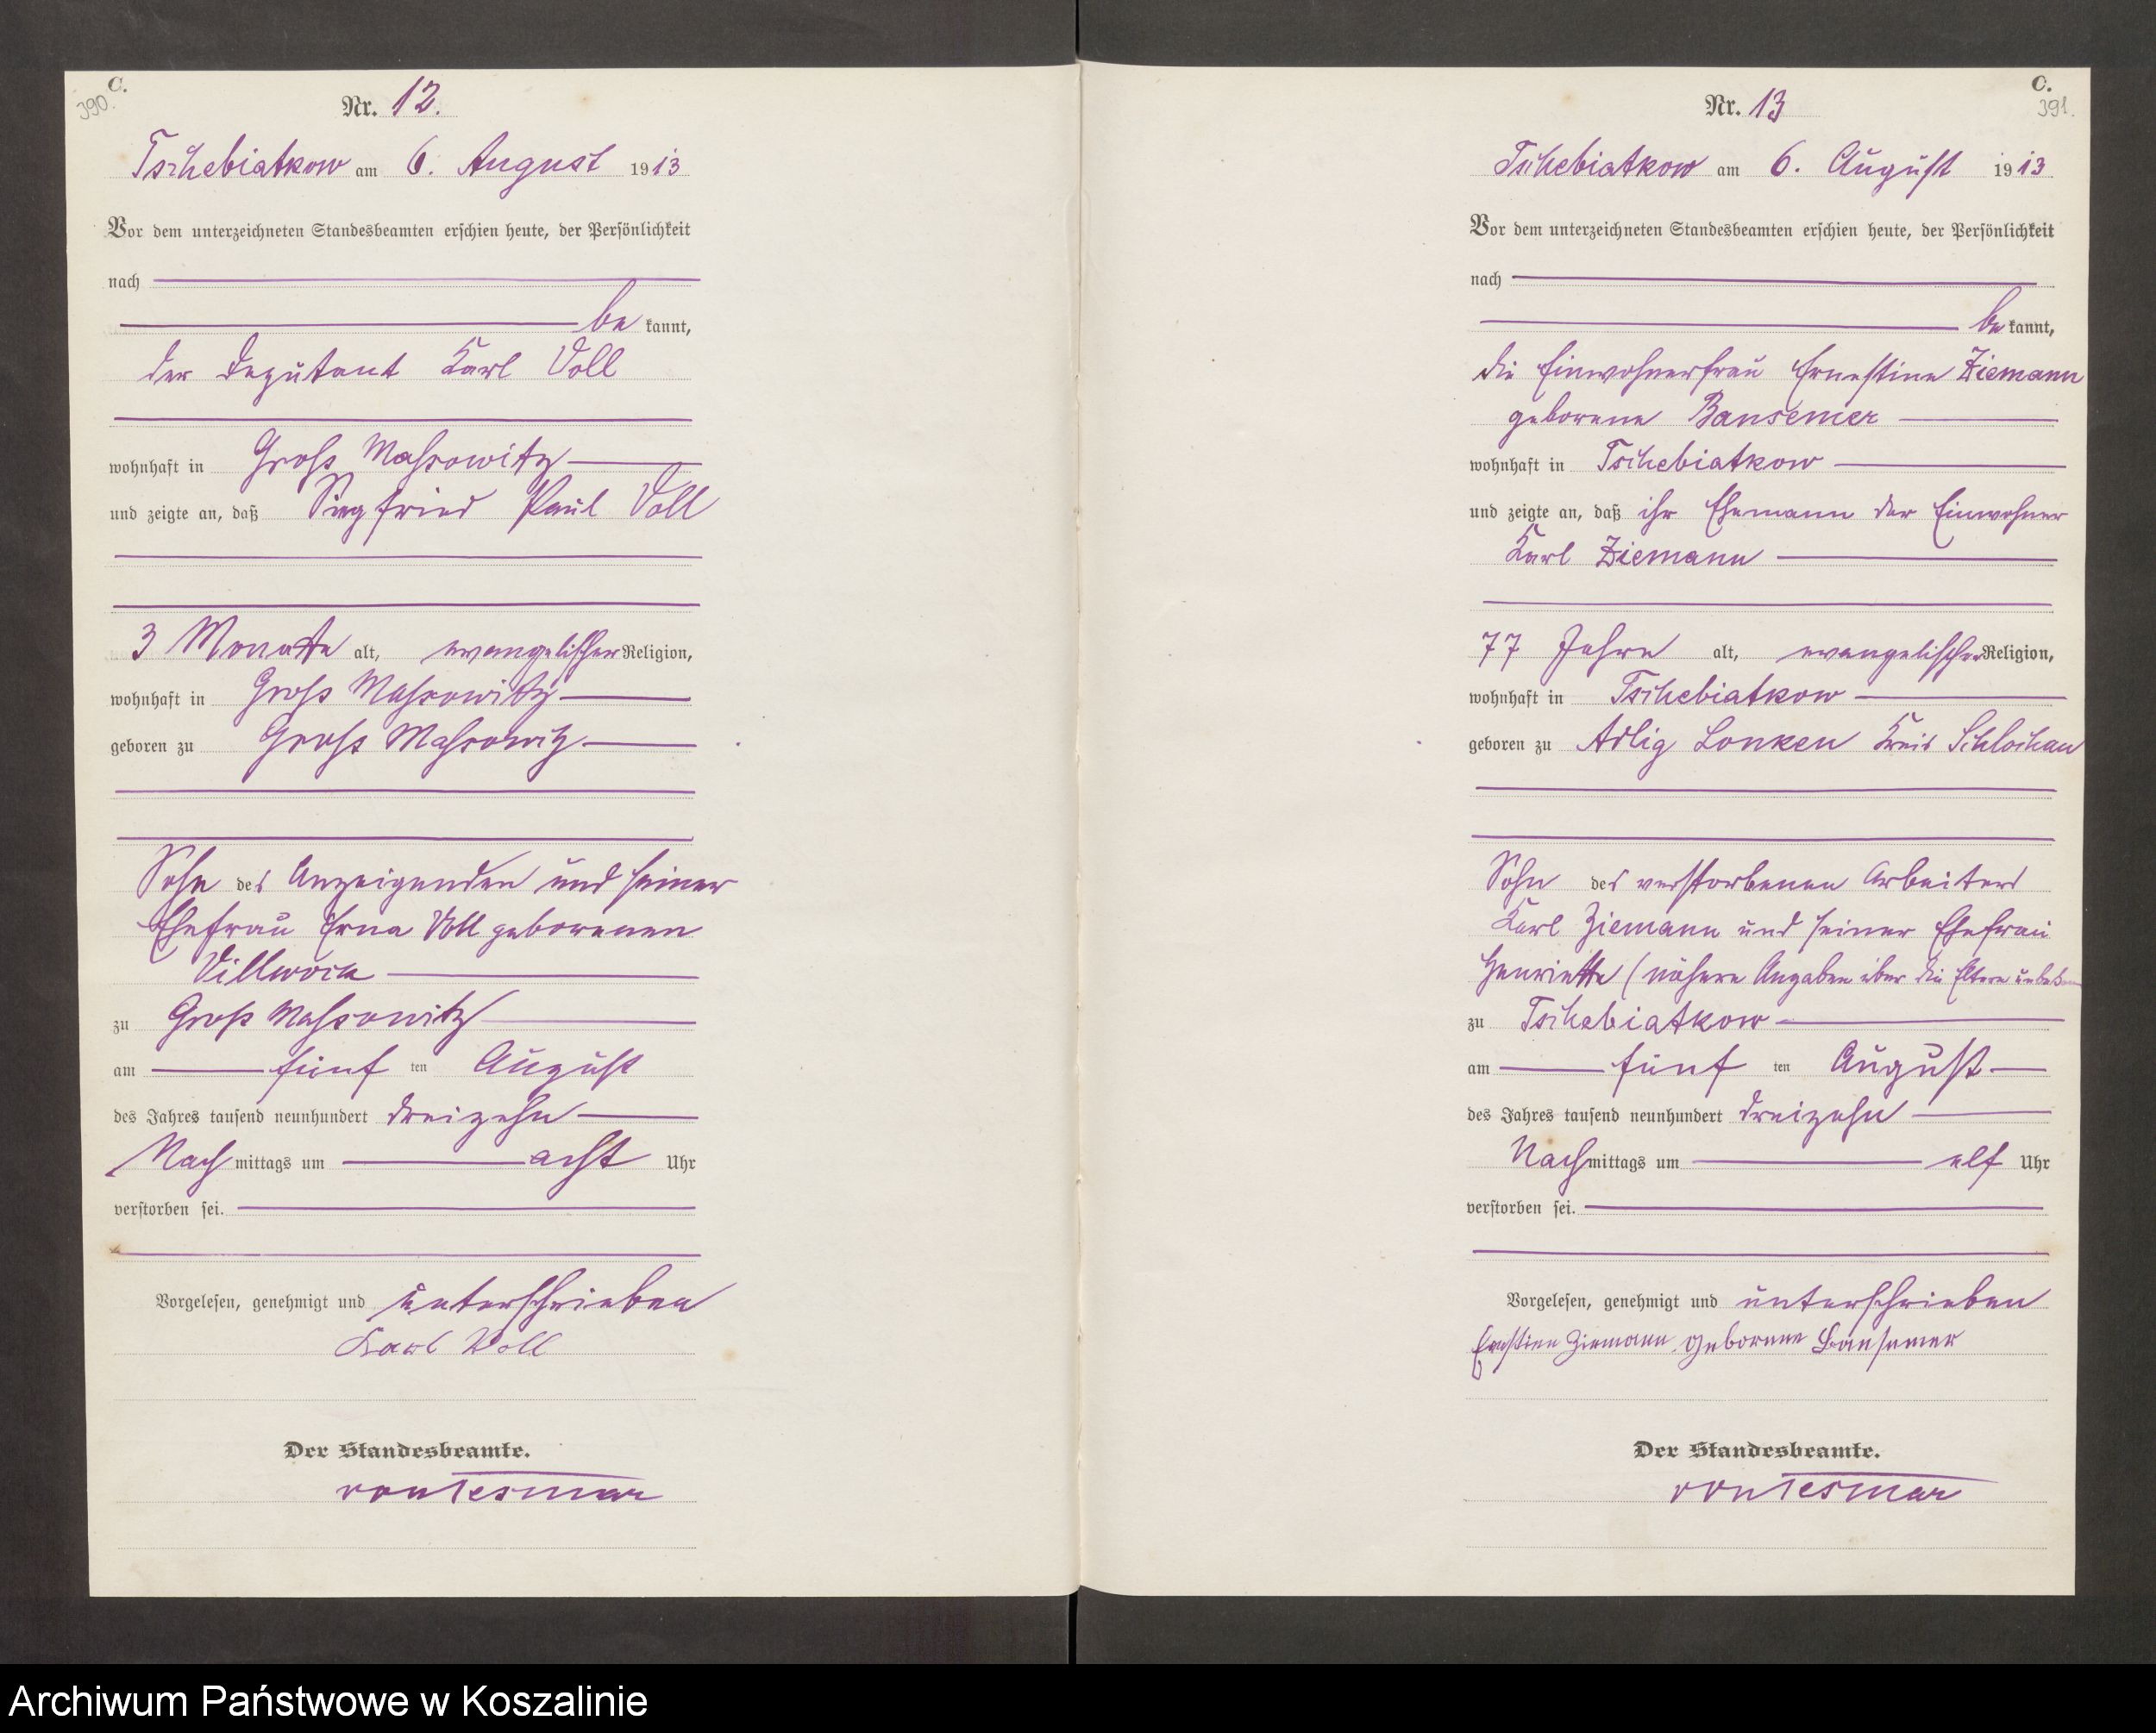 C.
390.
Nr. 12.
Tschebiatkow am 6. August 1913
Vor dem unterzeichneten Standesbeamten erschien heute, der Persönlichkeit
nach
be kannt,
der Deputant Karl Voll
wohnhaft in Gross Massowitz
und zeigte an, daß Siegfried Paul Voll
3 Monate alt, evangelischer Religion,
wohnhaft in Gross Massowitz
geboren zu Gross Massowitz
Sohn des Anzeigenden und seiner
Ehefrau Erna Voll geborenen
Villwock
zu Gross Massowitz
am fünf ten August
des Jahres tausend neunhundert dreizehn
Nach mittags um acht Uhr
verstorben sei.
Vorgelesen, genehmigt und unterschrieben
Karl Voll
Der Standesbeamte.
von Tesmar
C.
391.
Nr. 13
Tschebiatkow am 6. August 1913
Vor dem unterzeichneten Standesbeamten erschien heute, der Persönlichkeit
nach
be kannt,
die Einwohnerfrau Ernestine Ziemann
geborene Bansemer
wohnhaft in Tschebiatkow
und zeigte an, daß ihr Ehemann der Einwohner
Karl Ziemann
77 Jahre alt, evangelischer Religion,
wohnhaft in Tschebiatkow
geboren zu Adlig Lonken Kreis Schlochau
Sohn des verstorbenen Arbeiters
Karl Ziemann und seiner Ehefrau
Henriette (nähere Angaben über die Eltern
zu Tschebiatkow
am fünf ten August
des Jahres tausend neunhundert dreizehn
Nachmittags um elf Uhr
verstorben sei.
Vorgelesen, genehmigt und unterschrieben
Ziemann geborene Bansemer
Der Standesbeamte.
von Tesmar
Archiwum Państwowe w Koszalinie